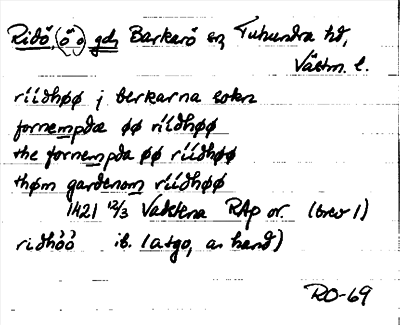 Ridö, (ö o) gdz Barkarö sn, Tuhundra hd,
Västm. l.
ríídhøø j berkarna sokn
fornempdæ øø ríídhøø
the fornempda øø ríídhøø
thøm gardenom ríídhøø
1421 12/3 Vadstena RAp or. (brev 1)
ridhöö ib. (atgo, a. hand)
RO-69